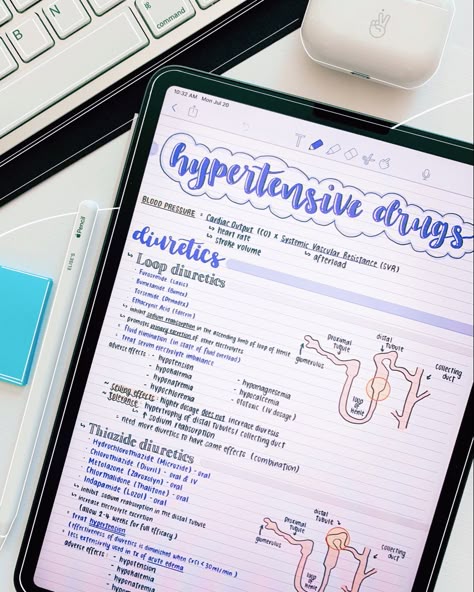 B
N
⌘
command
10:32 AM Mon Jul 20
T
Pencil
hypertensive drugs
BLOOD PRESSURE = Cardiac Output (CO) x Systemic Vascular Resistance (SVR)
↳ heart rate
↳ stroke volume
↳ afterload
diuretics
↳ Loop diuretics
· Furosemide (Lasix)
· Bumetanide (Bumex)
· Torsemide (Demadex)
· Ethacrynic Acid (Edecrin)
↳ inhibit sodium reabsorption in the ascending limb of loop of Henle
· promotes urinary excretion of other electrolytes
· fluid elimination (in state of fluid overload)
· treat serum electrolyte imbalance
adverse effects:
· hypotension
· hypokalemia
· hyponatremia
· hypochloremia
· hypomagnesemia
· hypocalcemia
· ototoxic (IV dosage)
~ Ceiling effects: higher dosage does not increase diuresis
~ Tolerance: hypertrophy of distal tubules/collecting duct
↳ ↑ sodium reabsorption
· need more diuretics to have same effects (combination)
proximal
tubule
distal
tubule
collecting
duct
glomerulus
loop
of
henle
↳ Thiazide diuretics
· Hydrochlorothiazide (Microzide) - oral
· Chlorothiazide (Diuril) - oral & IV
· Metolazone (Zaroxolyn) - oral
· Chlorthalidone (Thalitone) - oral
· Indapamide (Lozol) - oral
↳ inhibit sodium reabsorption in the distal tubule
· increase electrolyte excretion
(allow 2-4 weeks for full efficacy)
· treat hypertension
(effectiveness of diuretics is diminished when CrCl < 30 ml/min)
· less extensively used in tx of acute edema
adverse effects:
· hypotension
· hypokalemia
· hyponatremia
proximal
tubule
distal
tubule
collecting
duct
glomerulus
loop
of